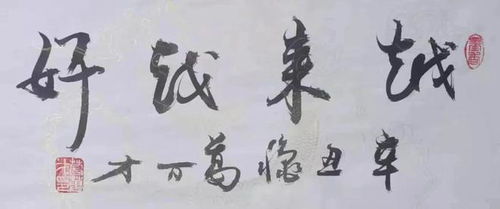 越来越好
辛丑穐萬百才